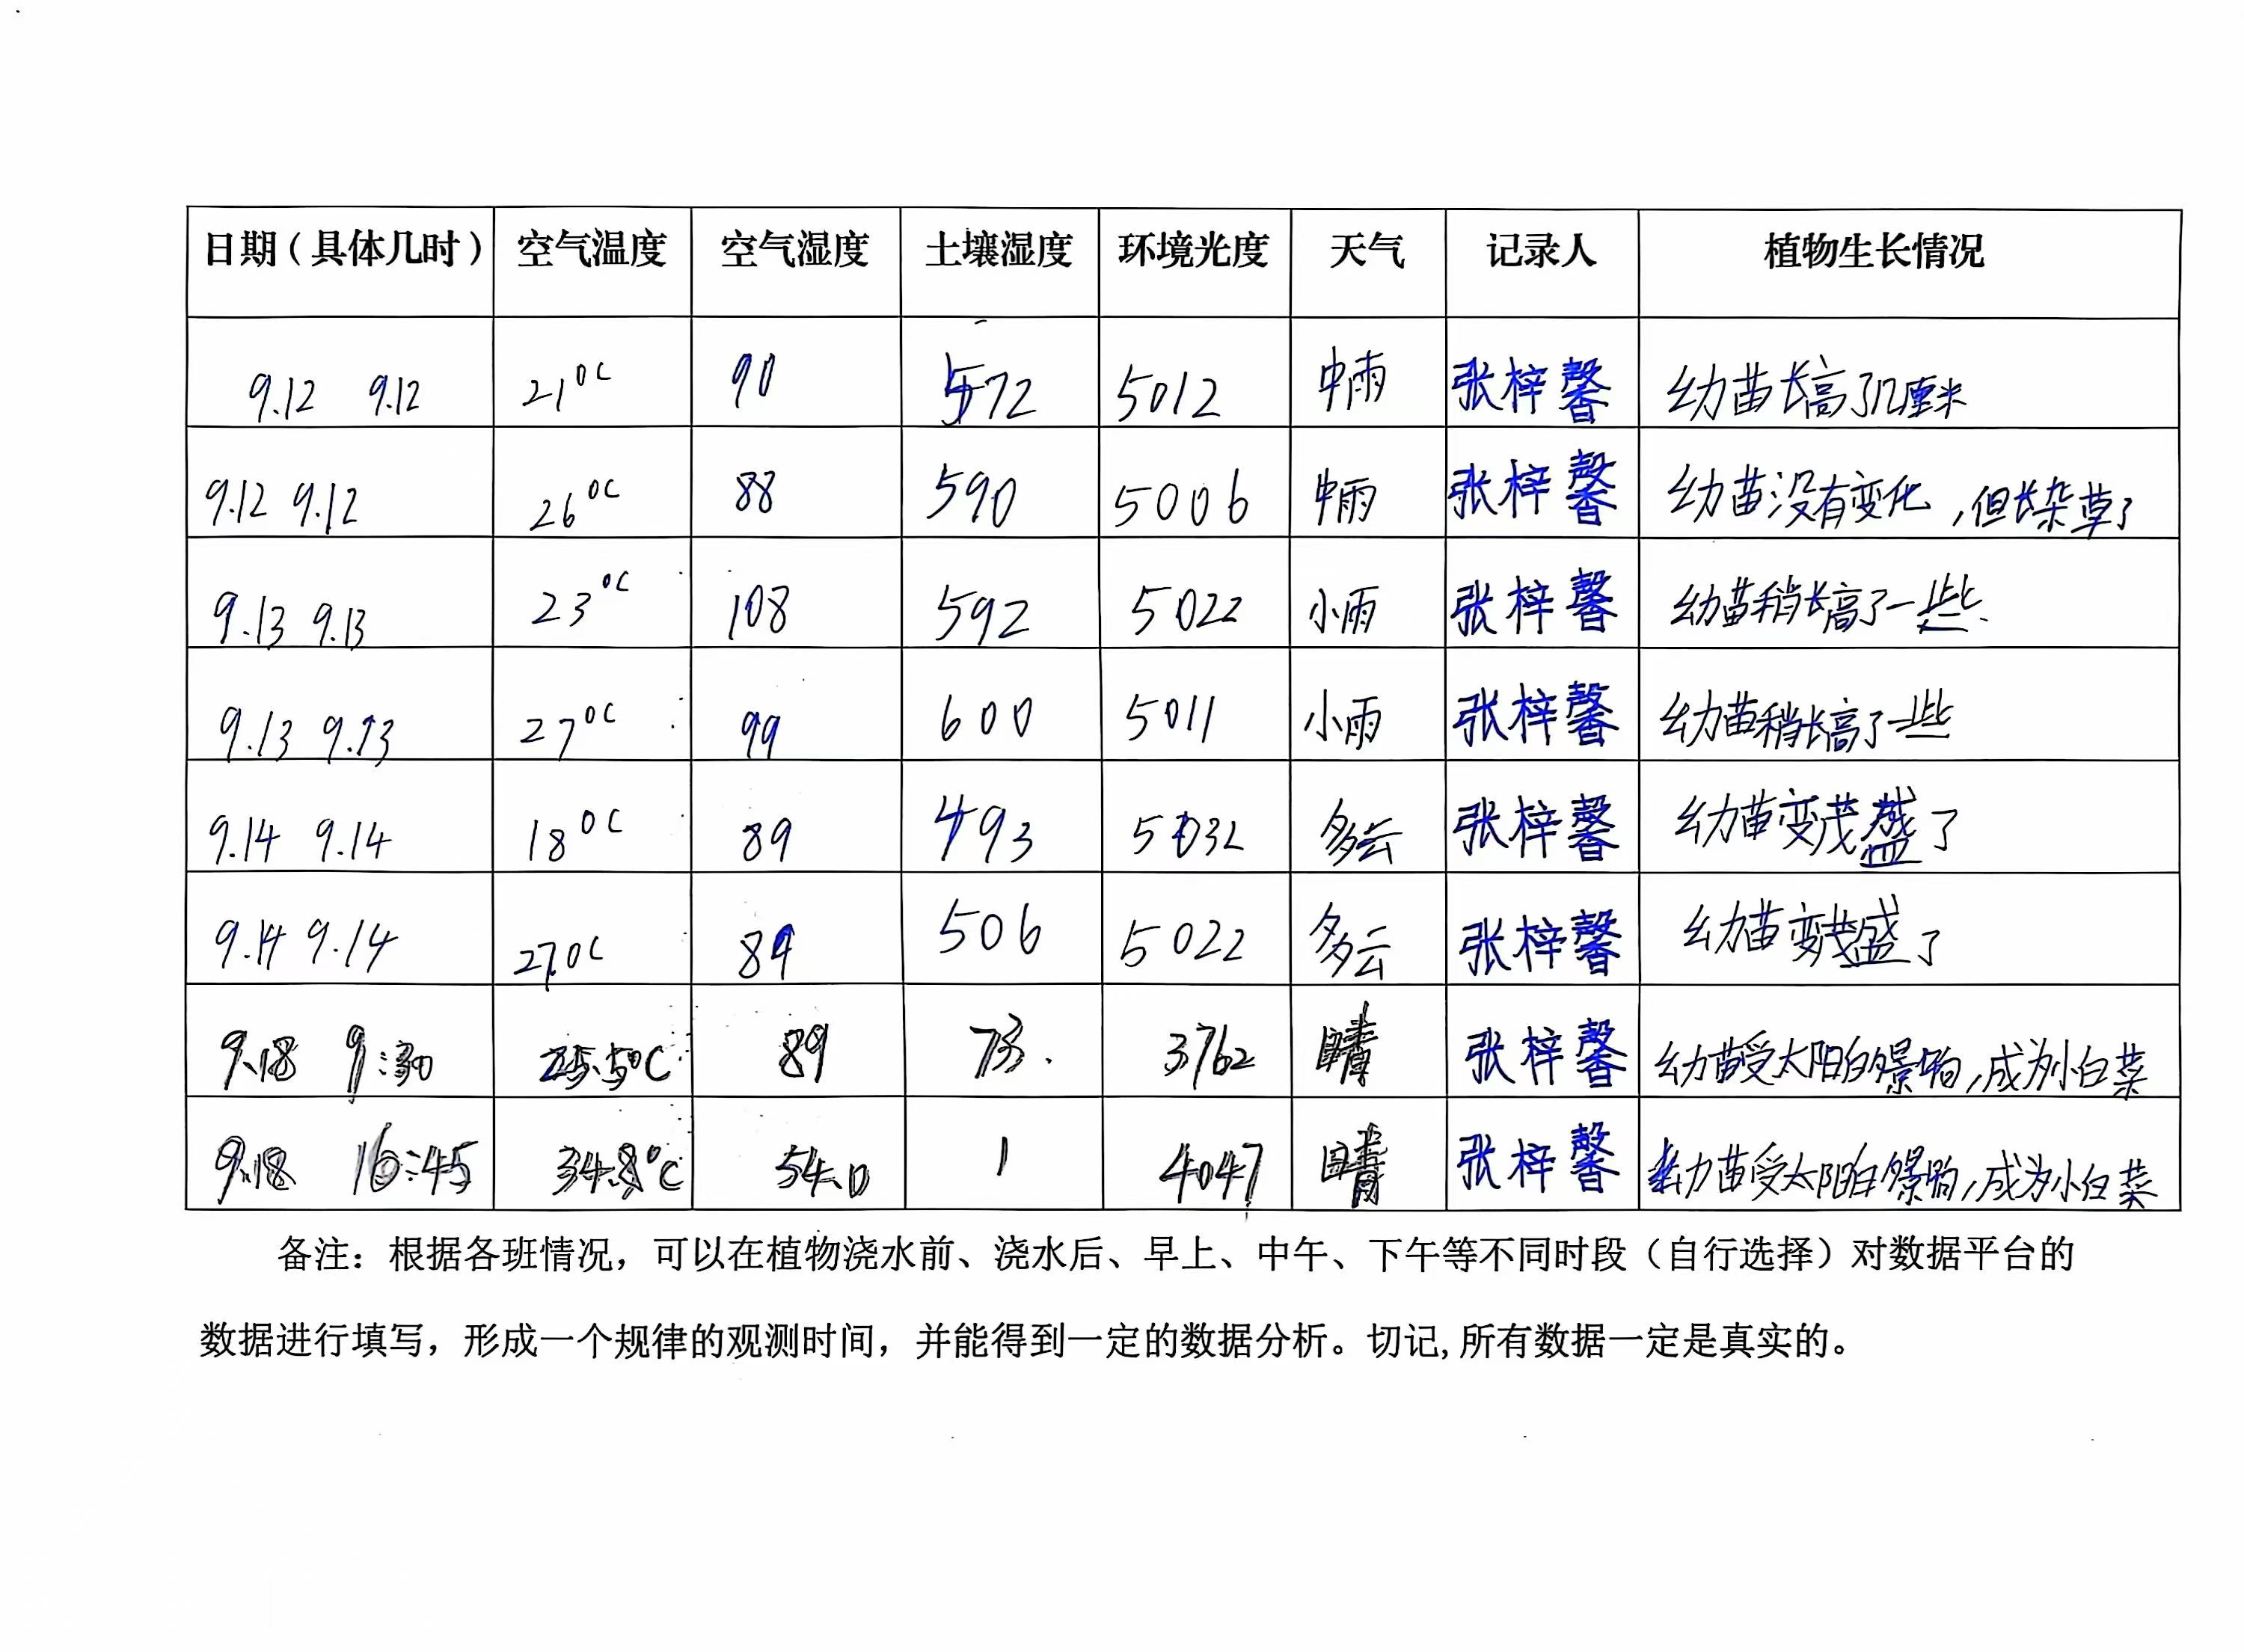 日期（具体几时） 空气温度 空气湿度 土壤湿度 环境光度 天气 记录人 植物生长情况
9.12 9.12 21°C 90 572 5012 中雨 张梓馨 幼苗长高了几厘米
9.12 9.12 26°C 88 590 5006 中雨 张梓馨 幼苗没有变化，但长杂草了
9.13 9.13 23°C 108 592 5022 小雨 张梓馨 幼苗稍长高了一些
9.13 9.13 27°C 99 600 5011 小雨 张梓馨 幼苗稍长高了一些
9.14 9.14 18°C 89 493 5032 多云 张梓馨 幼苗变茂盛了
9.14 9.14 27°C 89 506 5022 多云 张梓馨 幼苗变茂盛了
9.18 9:30 25.5°C 89 73. 3762 晴 张梓馨 幼苗受太阳的影响，成为小白菜
9.18 16:45 34.8°C 54.0 1 4047 晴 张梓馨 幼苗受太阳的影响，成为小白菜
备注：根据各班情况，可以在植物浇水前、浇水后、早上、中午、下午等不同时段（自行选择）对数据平台的
数据进行填写，形成一个规律的观测时间，并能得到一定的数据分析。切记,所有数据一定是真实的。